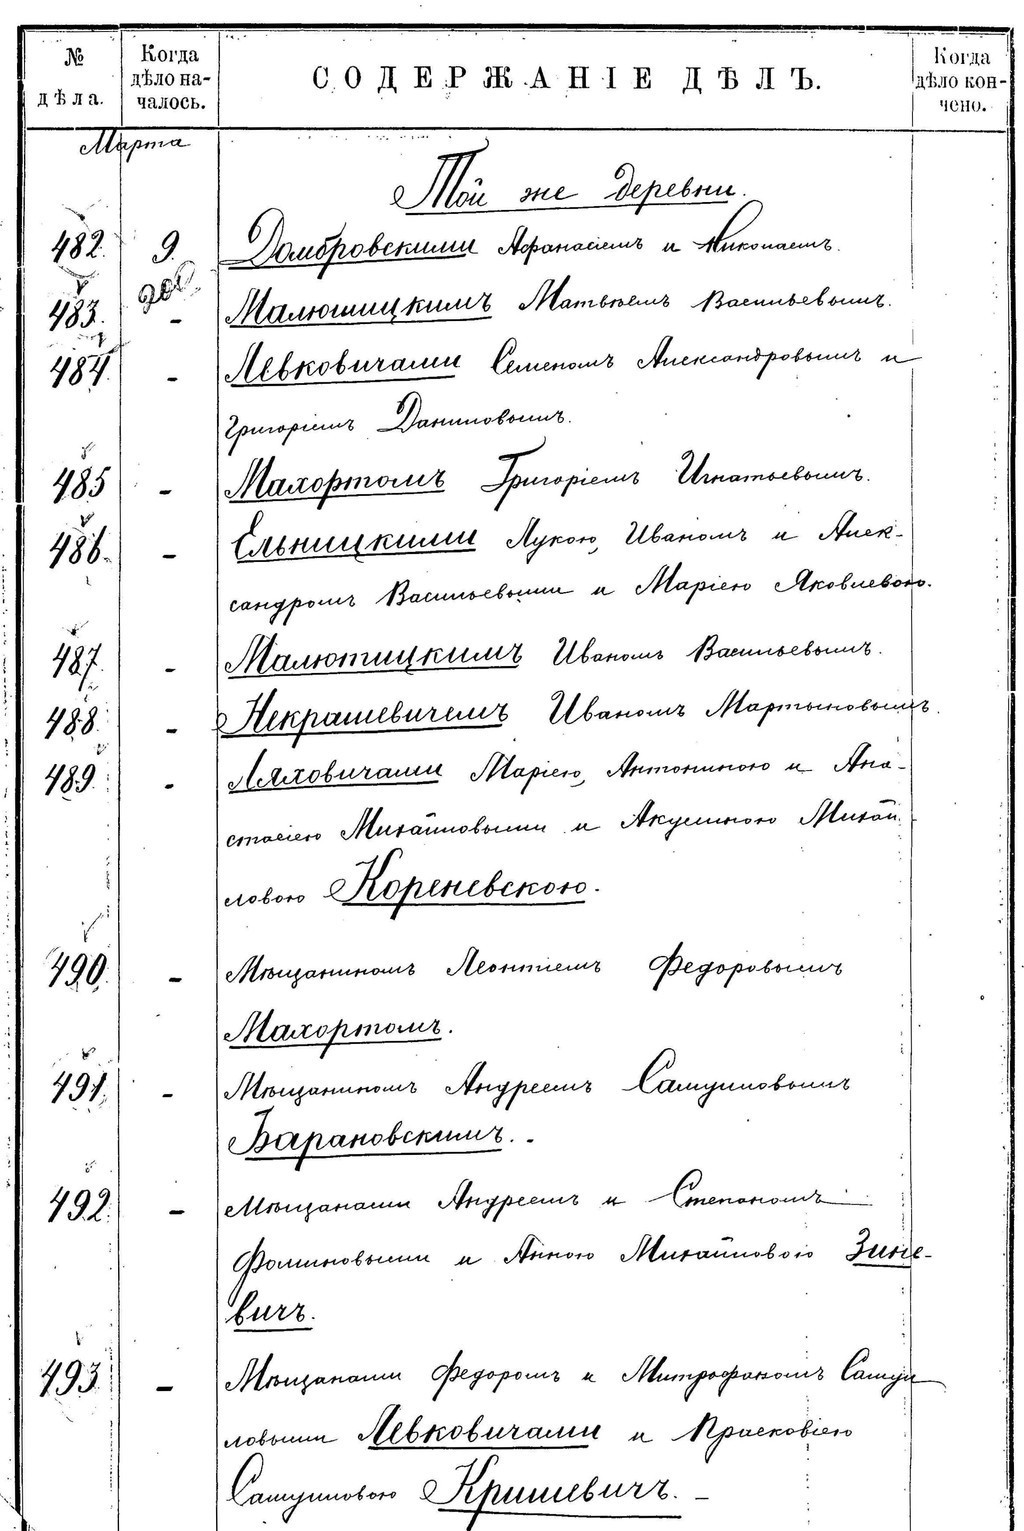 № дѣла. Когда дѣло на-чалось. СОДЕРЖАНІЕ ДѢЛЪ. Когда дѣло кон-чено.
Марта
Той же деревни.
482. 9. Домбровскими Афанасіемъ и Николаемъ.
483. - Малюшицкимъ Матвѣемъ Васильевымъ.
484. - Левковичами Семеномъ Александровымъ и
Григоріемъ Даниловымъ.
485 - Махортомъ Григоріемъ Игнатьевымъ.
486. - Ельницкими Лукою, Иваномъ и Алек-
сандромъ Васильевыми и Маріею Яковлевою.
487. - Малютицкимъ Иваномъ Васильевымъ.
488. - Некрашевичемъ Иваномъ Мартыновымъ.
489. - Ляховичами Маріею, Антониною и Ана-
стасіею Михайловыми и Акулиною Михай
ловою Кореневскою.
490. - Мѣщаниномъ Леонтіемъ Федоровымъ
Махортомъ.
491. - Мѣщаниномъ Андреемъ Самуиловымъ
Барановскимъ. -
492. - Мѣщанами Андреемъ и Степаномъ
Фоминовыми и Анною Михайловою Зине-
вичъ.
493. - Мѣщанами Федоромъ и Митрофаномъ Самуи
ловыми Левковичами и Прасковіею
Самуиловою Кришевичъ. -